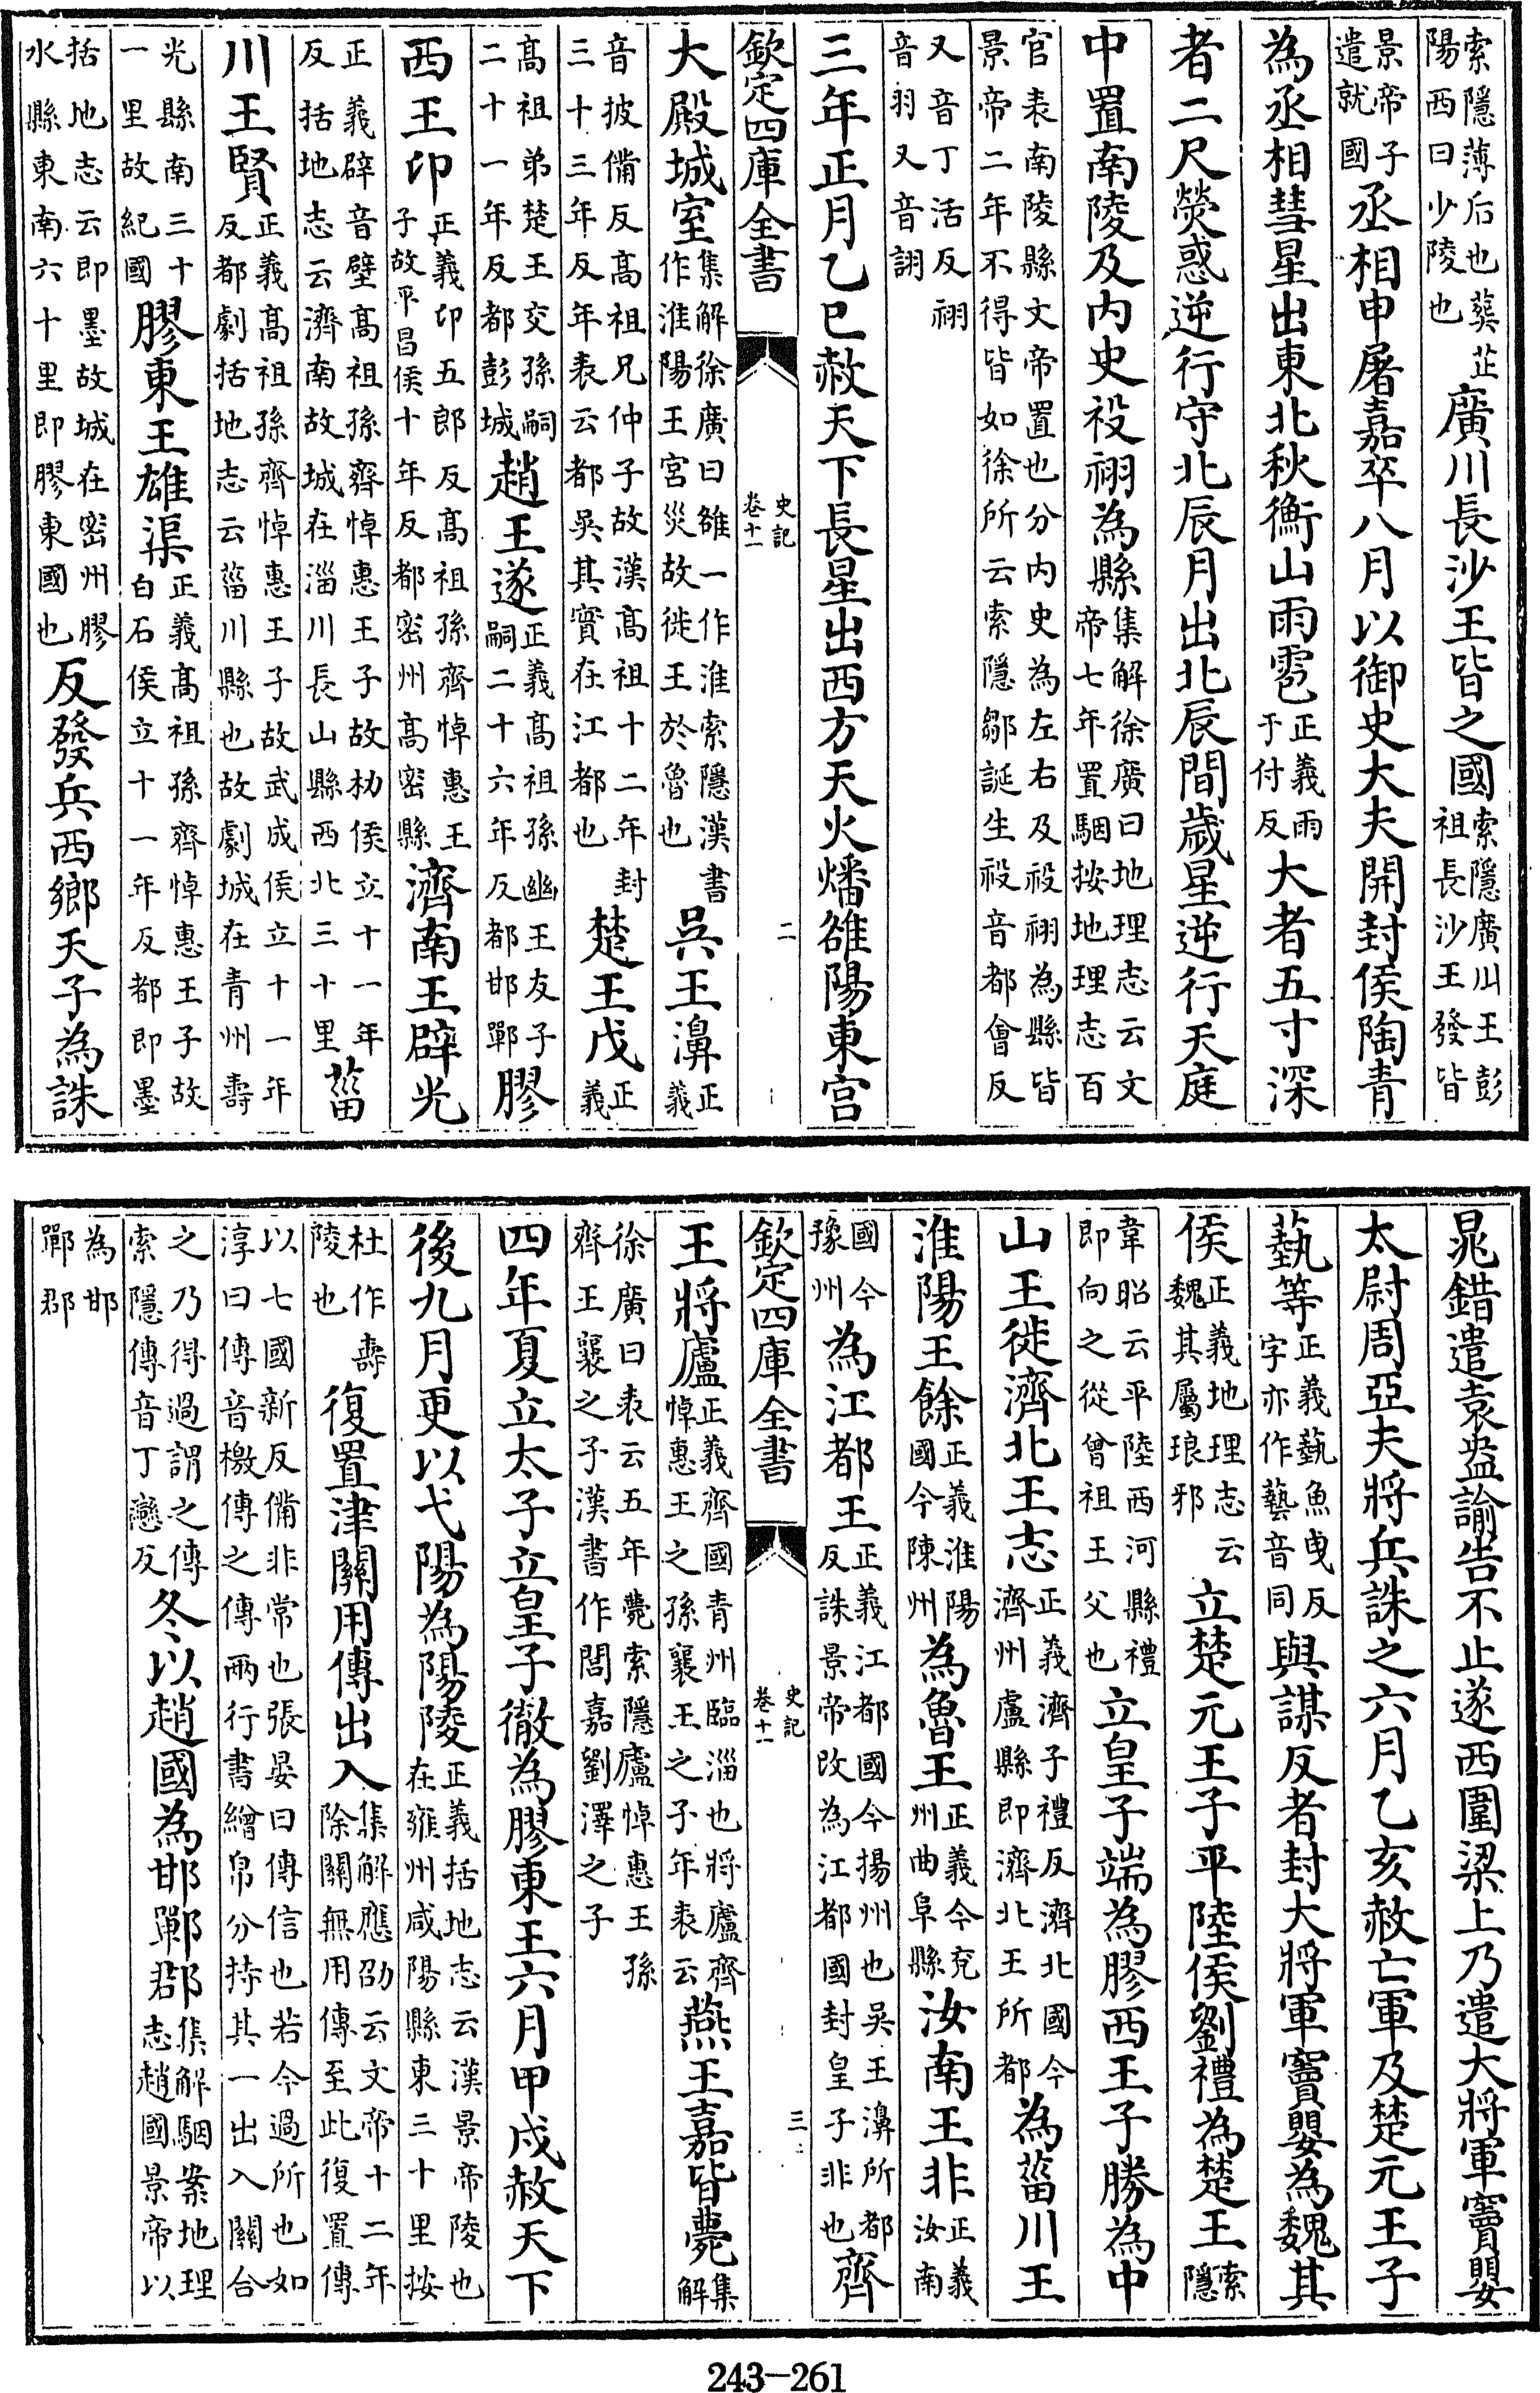 索隱薄后也葬芷
陽西曰少陵也
廣川長沙王皆之國
索隱廣川王彭
祖長沙王發皆
景帝子
遣就國
丞相申屠嘉卒八月以御史大夫開封侯陶青
為丞相彗星出東北秋衡山雨雹
正義雨
于付反
大者五寸深
者二尺熒惑逆行守北辰月出北辰間歲星逆行天庭
中置南陵及内史祋祤為縣
集解徐廣曰地理志云文
帝七年置駰按地理志百
官表南陵縣文帝置也分内史為左右及祋祤為縣皆
景帝二年不得皆如徐所云索隱鄒誕生祋音都會反
又音丁活反祤
音羽又音詡
三年正月乙巳赦天下長星出西方天火燔雒陽東宫
欽定四庫全書
史記
卷十一
二
大殿城室
集解徐廣曰雒一作淮索隱漢書
作淮陽王宫災故徙王於魯也
吳王濞
正
義
音披備反高祖兄仲子故漢高祖十二年封
三十三年反年表云都吳其實在江都也
楚王戊
正
義
高祖弟楚王交孫嗣
二十一年反都彭城
趙王遂
正義高祖孫幽王友子
嗣二十六年反都邯鄲
膠
西王卬
正義卬五郎反高祖孫齊悼惠王
子故平昌侯十年反都密州高密縣
濟南王辟光
正義辟音壁高祖孫齊悼惠王子故扐侯立十一年
反括地志云濟南故城在淄川長山縣西北三十里
菑
川王賢
正義高祖孫齊悼惠王子故武成侯立十一年
反都劇括地志云菑川縣也故劇城在青州壽
光縣南三十
一里故紀國
膠東王雄渠
正義高祖孫齊悼惠王子故
白石侯立十一年反都即墨
括地志云即墨故城在密州膠
水縣東南六十里即膠東國也
反發兵西鄉天子為誅
晁錯遣袁盎諭告不止遂西圍梁上乃遣大將軍竇嬰
太尉周亞夫將兵誅之六月乙亥赦亡軍及楚元王子
蓺等
正義蓺魚曳反
字亦作藝音同
與謀反者封大將軍竇嬰為魏其
侯
正義地理志云
魏其屬琅邪
立楚元王子平陸侯劉禮為楚王
索
隱
韋昭云平陸西河縣禮
即向之從曾祖王父也
立皇子端為膠西王子勝為中
山王徙濟北王志
正義濟子禮反濟北國今
濟州盧縣即濟北王所都
為菑川王
淮陽王餘
正義淮陽
國今陳州
為魯王
正義今兖
州曲阜縣
汝南王非
正義
汝南
國今
豫州
為江都王
正義江都國今揚州也吳王濞所都
反誅景帝改為江都國封皇子非也
齊
欽定四庫全書
史記
卷十一
三
王將廬
正義齊國青州臨淄也將廬齊
悼惠王之孫襄王之子年表云
燕王嘉皆薨
集
解
徐廣曰表云五年薨索隱廬悼惠王孫
齊王襄之子漢書作閎嘉劉澤之子
四年夏立太子立皇子徹為膠東王六月甲戌赦天下
後九月更以弋陽為陽陵
正義括地志云漢景帝陵也
在雍州咸陽縣東三十里按
杜作壽
陵也
復置津關用傳出入
集解應劭云文帝十二年
除關無用傳至此復置傳
以七國新反備非常也張晏曰傳信也若今過所也如
淳曰傳音檄傳之傳兩行書繒帛分持其一出入關合
之乃得過謂之傳
索隱傳音丁戀反
冬以趙國為邯鄲郡
集解駰案地理
志趙國景帝以
為邯
鄲郡
243—261